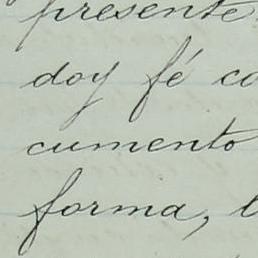 presente
doy fé co
cumento
forma, l